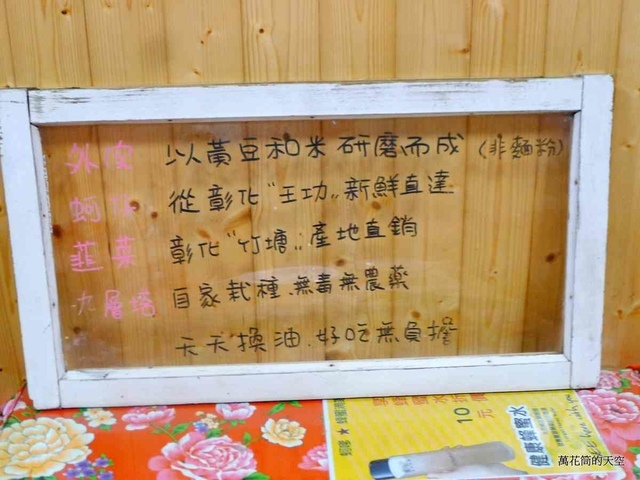 外皮 以黃豆和米研磨而成(非麵粉)
蚵仔 從彰化"王功"新鮮直達
韮菜 彰化"竹塘"產地直銷
九層塔 自家栽種.無毒無農藥
天天換油.好吃無負擔
10元
健康蜂蜜水
萬花筒的天空